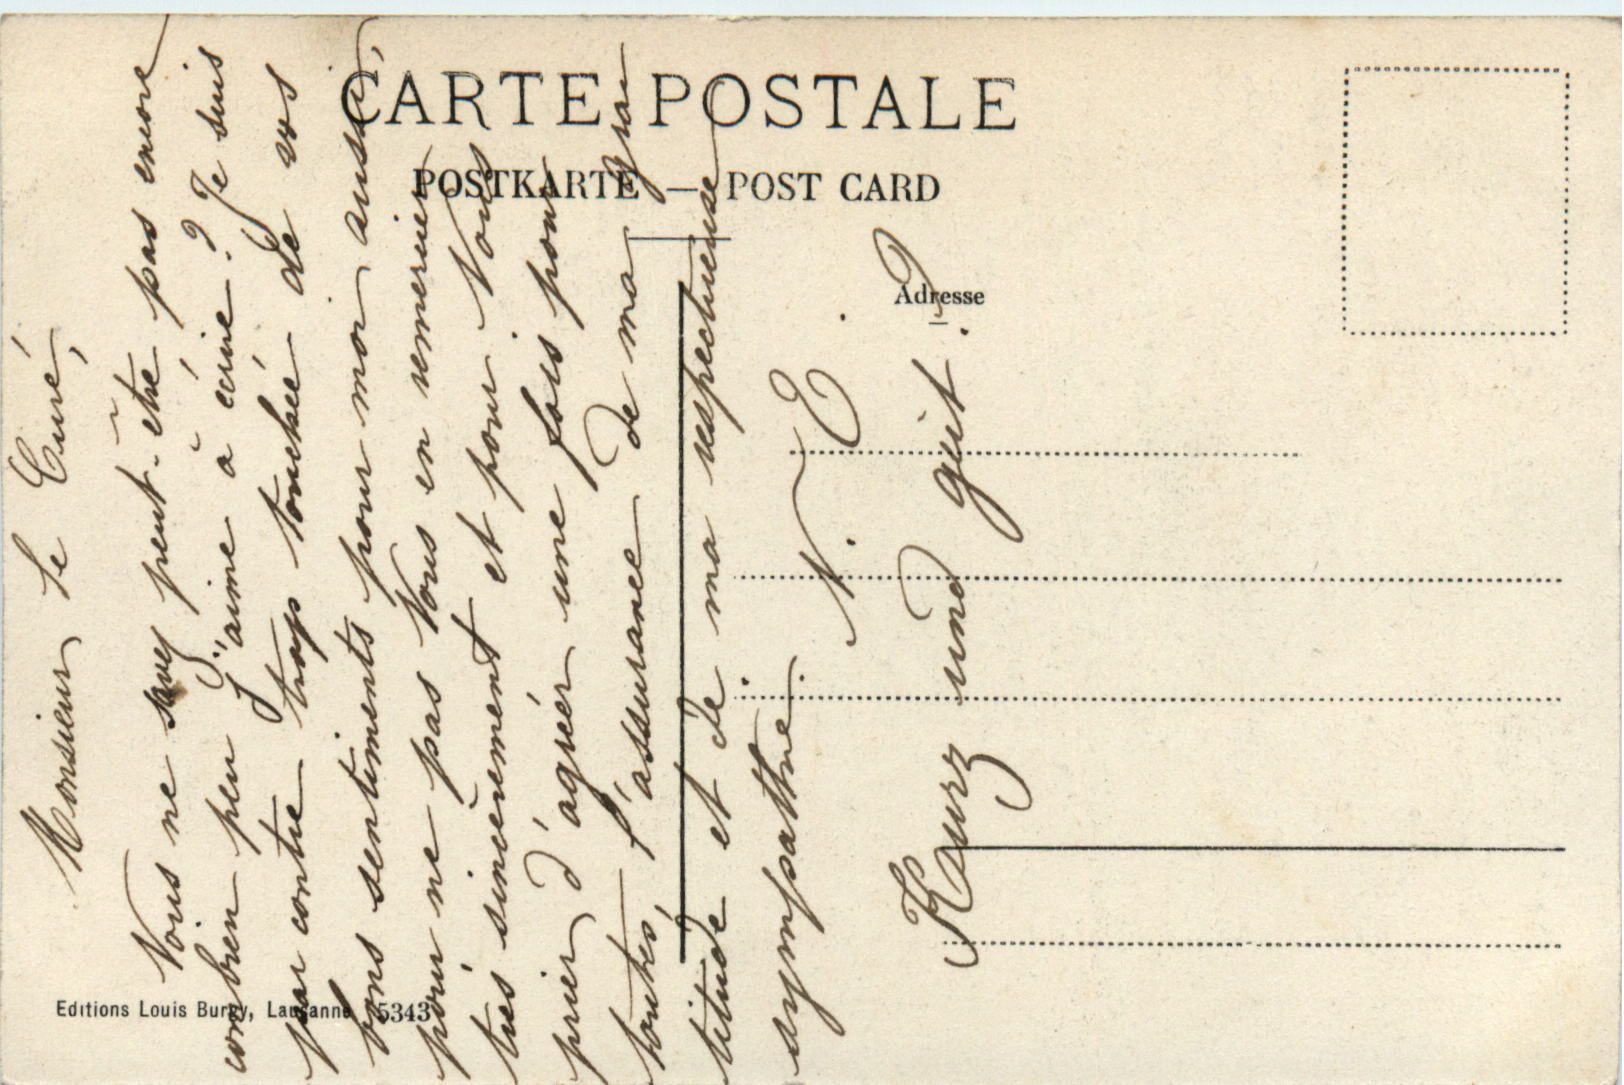 CARTE POSTALE
POSTKARTE — POST CARD
Adresse
Monsieur le Curé,
Vous ne savez peut-être pas encore
combien peu j'aime à écrire? Je suis
par contre trop touchée de vos
bons sentiments pour moi aussi,
pour ne pas Vous en remercier
très sincèrement et pour Vous
prier d'agréer une fois pour
toutes, l'assurance de ma gra
titude et de ma respectueuse
sympathie.
N. E.
Kurz und gut.
Editions Louis Burgy, Lausanne 5343